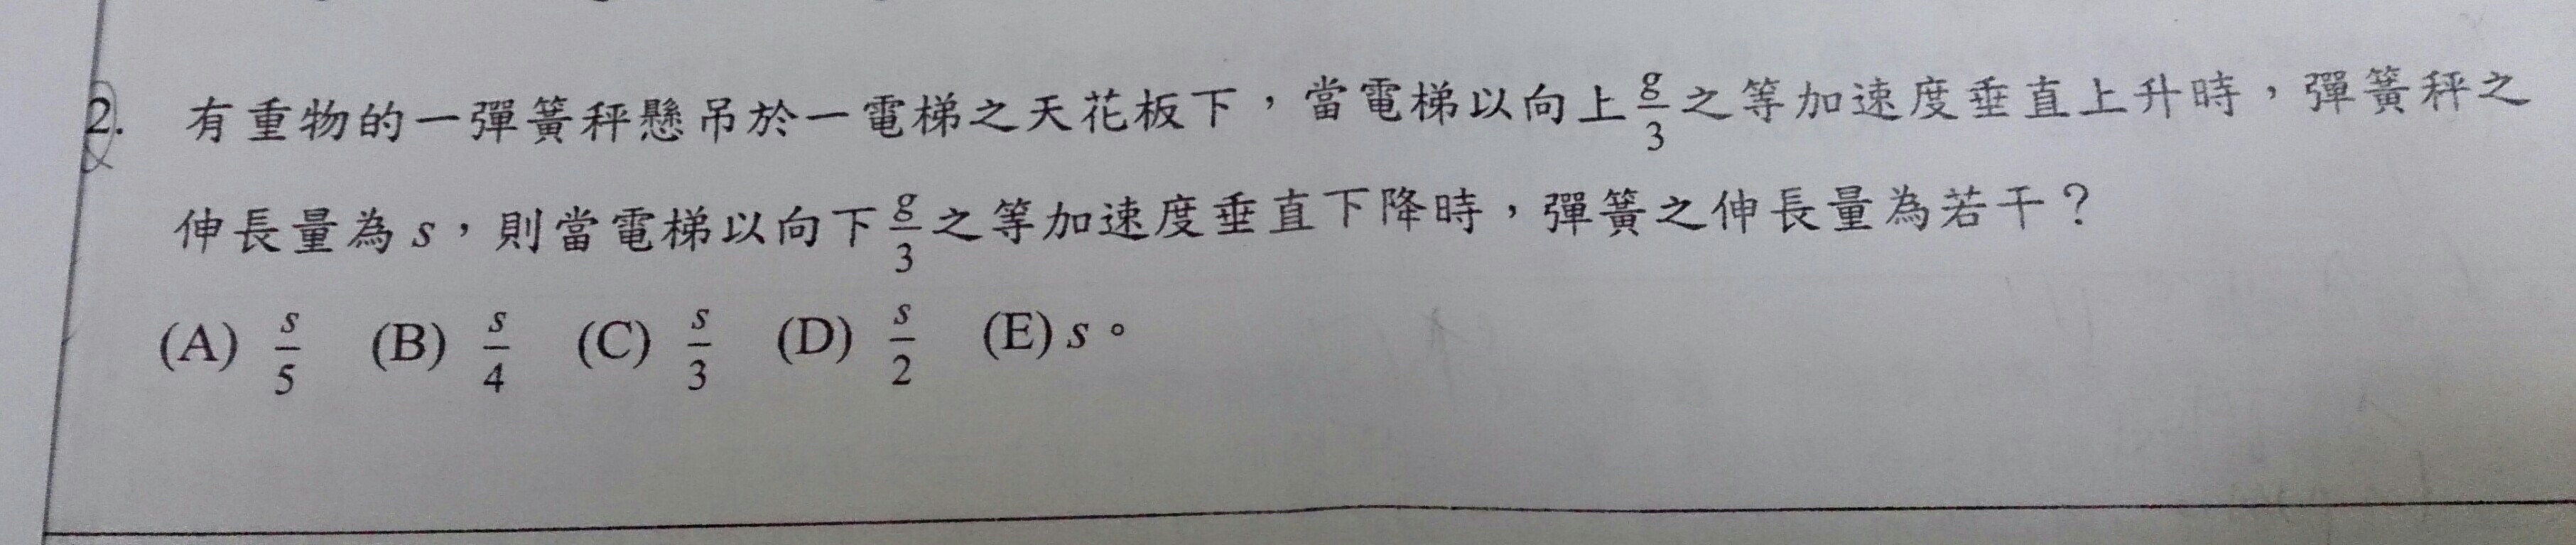 2. 有重物的一彈簧秤懸吊於一電梯之天花板下，當電梯以向上 g/3 之等加速度垂直上升時，彈簧秤之
伸長量為 s，則當電梯以向下 g/3 之等加速度垂直下降時，彈簧之伸長量為若干？
(A) s/5 (B) s/4 (C) s/3 (D) s/2 (E) s。